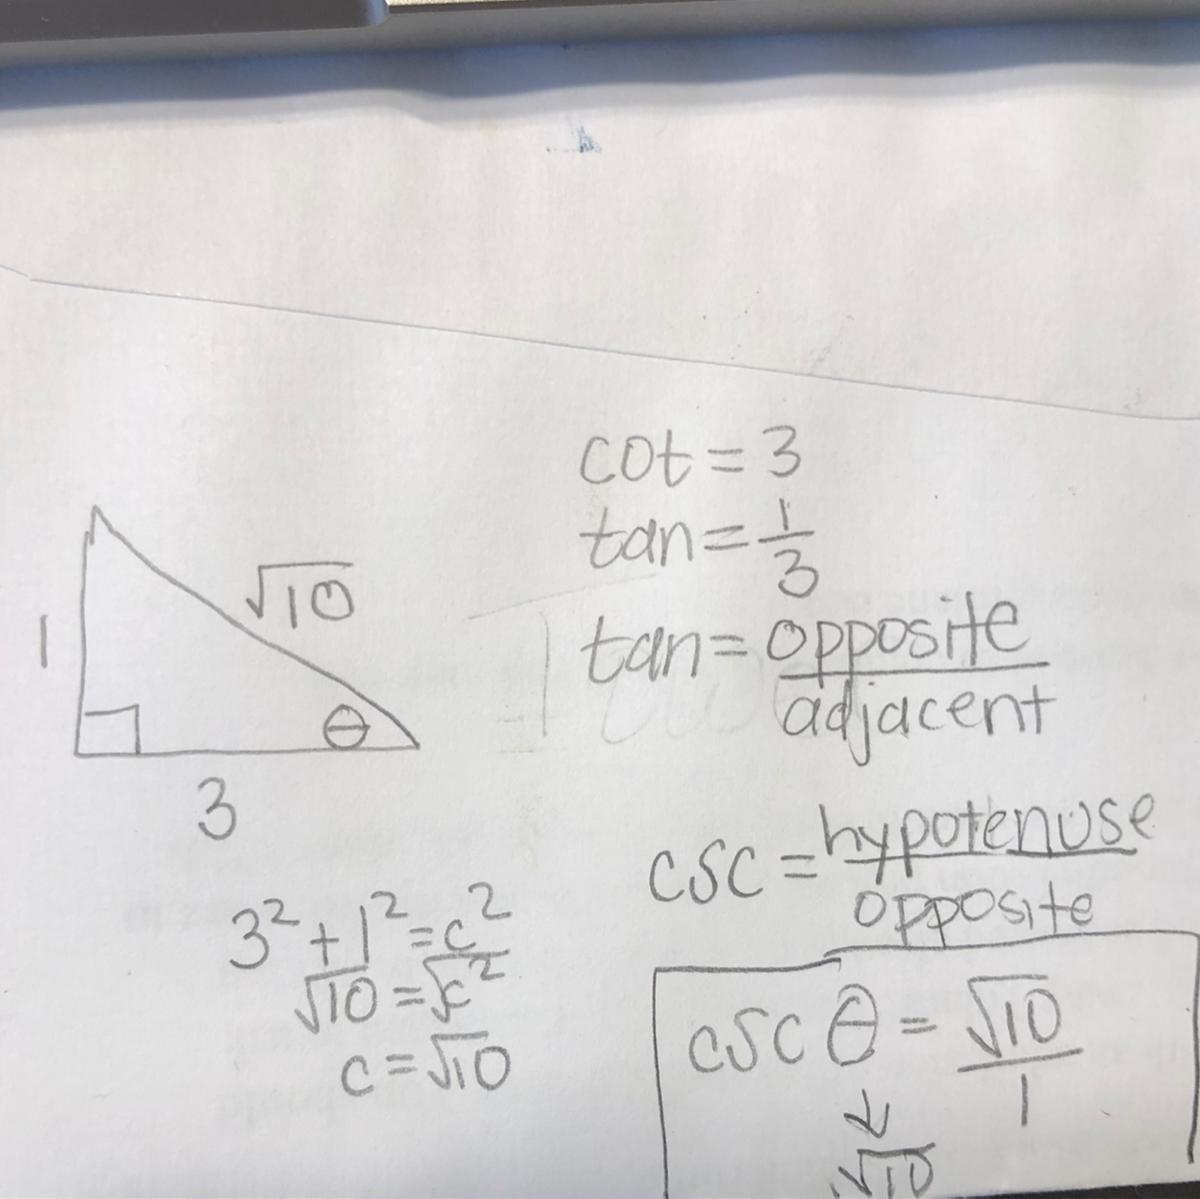 cot = 3
tan = 1/3
tan = opposite/adjacent
1
√10
θ
3
csc = hypotenuse/opposite
3² + 1² = c²
√10 = √c²
c = √10
csc θ = √10/1
√10